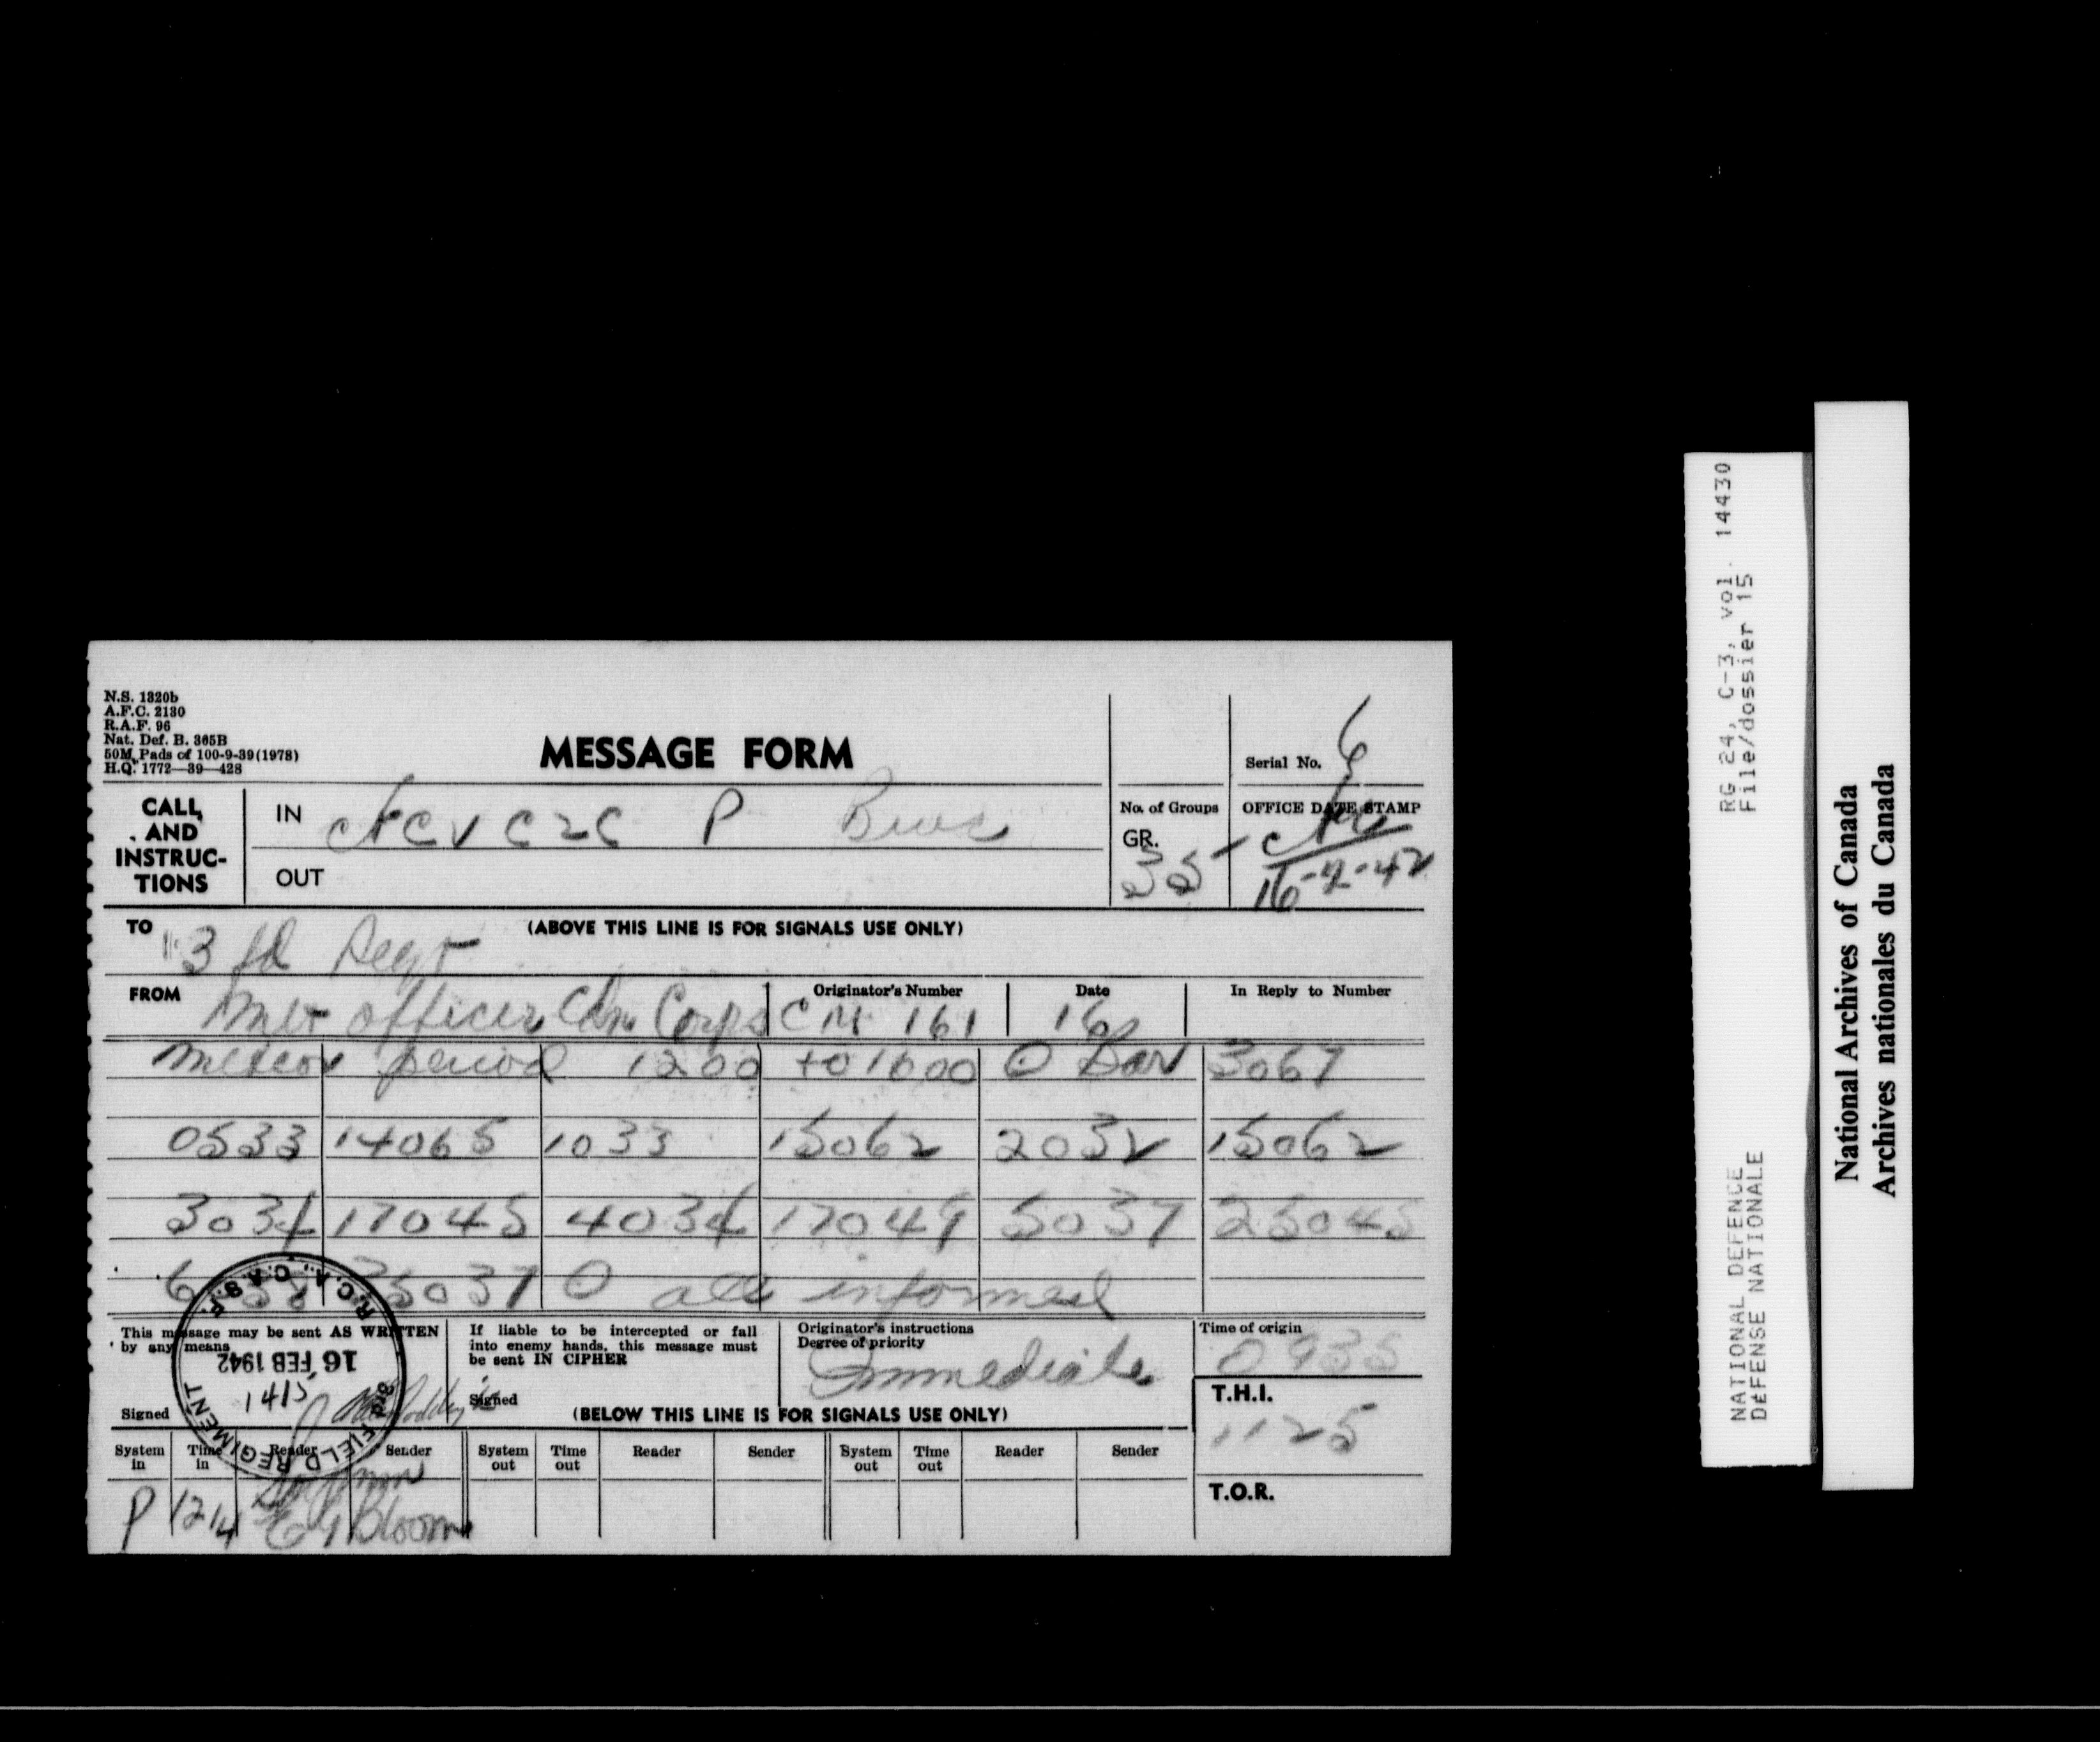 N.S. 1320b
A.F.C. 2130
R.A.F. 96
Nat. Def. B. 365B
50M Pads of 100-9-39(1978)
H.Q. 1772—39—428
MESSAGE FORM
Serial No. 6
CALL AND INSTRUCTIONS
IN
C2C P
OUT
No. of Groups
GR.
35
OFFICE DATE STAMP
16-2-42
TO
(ABOVE THIS LINE IS FOR SIGNALS USE ONLY)
3 fd Regt
FROM
Met officer Cdn Corps
Originator's Number
CM 161
Date
16
In Reply to Number
meteor period 1200 to 1600 O Bar 3067
0533 14065 1033 15062 2032 15062
3034 17045 4034 17049 5037 25045
35037 O all informed
This message may be sent AS WRITTEN
by any means
Signed
If liable to be intercepted or fall
into enemy hands, this message must
be sent IN CIPHER
Signed
Originator's instructions
Degree of priority
Immediate
Time of origin
0935
3rd FIELD REGIMENT
R.C.A., C.A.S.F.
16 FEB 1942
1415
(BELOW THIS LINE IS FOR SIGNALS USE ONLY)
T.H.I.
1125
System in Time in Reader Sender System out Time out Reader Sender System out Time out Reader Sender
T.O.R.
P 1214 Bloom
RG 24, C-3, vol. 14430
File/dossier 15
NATIONAL DEFENCE
DÉFENSE NATIONALE
National Archives of Canada
Archives nationales du Canada